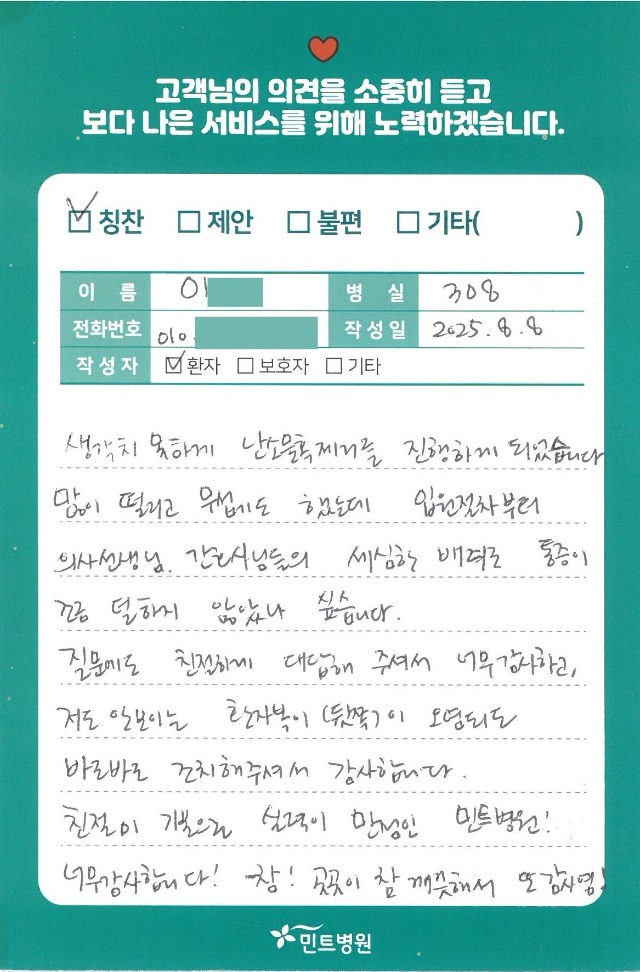 고객님의 의견을 소중히 듣고
보다 나은 서비스를 위해 노력하겠습니다.
칭찬 제안 불편 기타( )
이 름 이 병 실 308
전화번호 010. 작성일 2025.8.8
작성자 환자 보호자 기타
생각치 못하게 난소물혹제거를 진행하게 되었습니다
많이 떨리고 무섭기도 했는데 입원절차부터
의사선생님, 간호사님들의 세심한 배려로 통증이
조금 덜하지 않았나 싶습니다.
질문에도 친절하게 대답해 주셔서 너무감사하고,
저도 안보이는 환자복이 (뒷쪽)이 오염되도
바로바로 조치해주셔서 감사합니다.
친절이 기본으로 실력이 만점인 민트병원!
너무감사합니다! 참! 곳곳이 참 깨끗해서 또 감사명!
민트병원